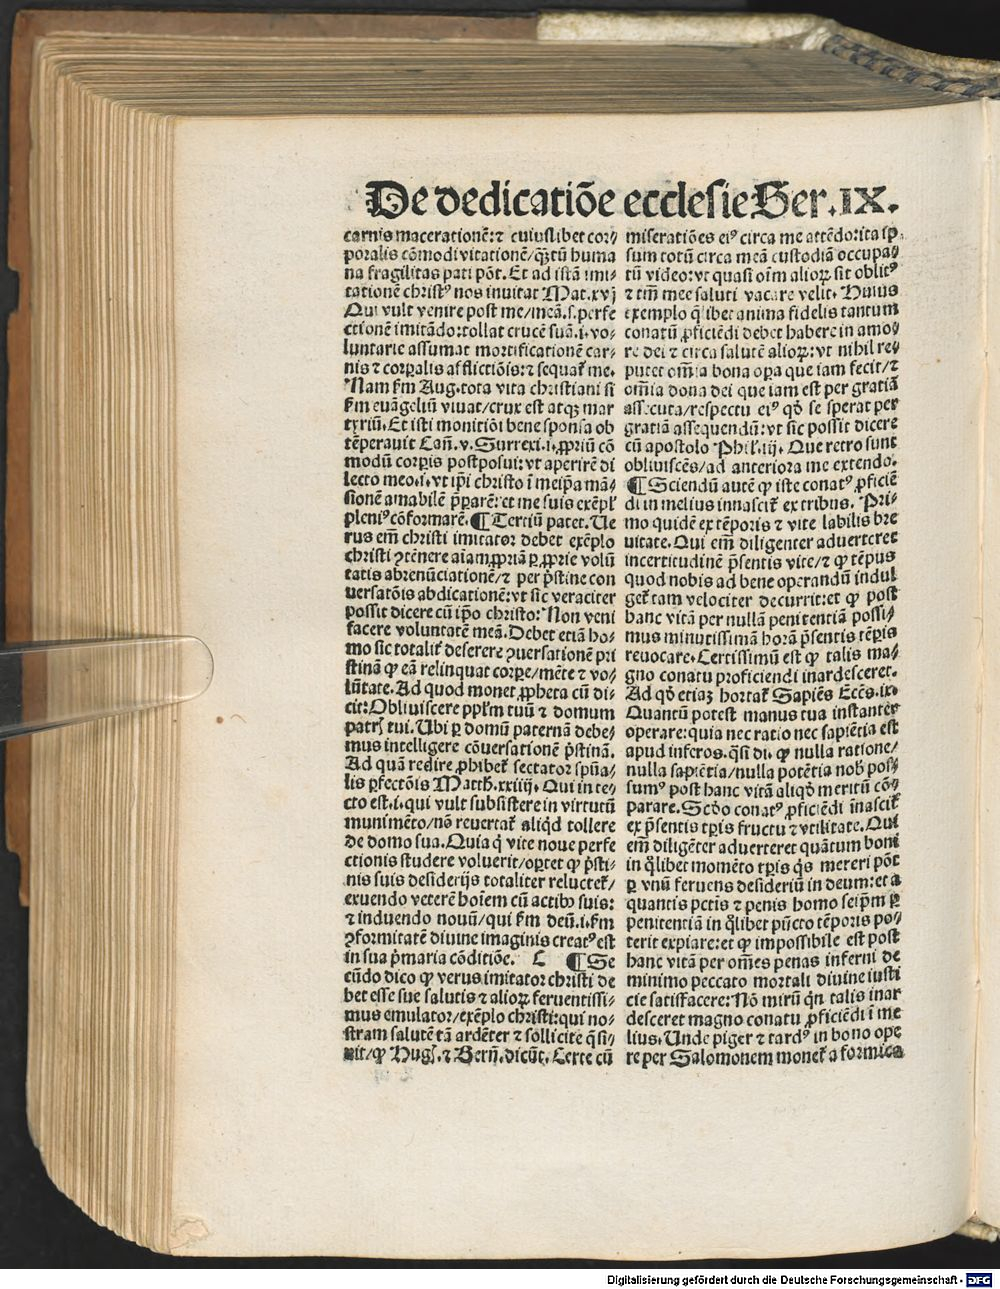 De dedicatiõe ecclesie Ser. IX.
carnis maceratione꞉ ⁊ cuiuslibet cor⸗
poralis cõmodi vitationẽ/q̃ꝫtũ huma
na fragilitas pati põt. Et ad istã imi⸗
tationẽ christꝰ nos inuitat Mat.xvj
Qui vult venire post me/meã.s.perfe
ctionẽ imitãdo:tollat crucẽ suã.i.vo⸗
luntarie assumat mortificationẽ car⸗
nis ⁊ corꝑalis afflictiõis:⁊ sequat᷑ me.
Nam fm̃ Aug.tota vita christiani si
fm̃ euãgeliũ viuat/crux est atqꝫ mar
tyriũ. Et isti monitiõi bene sponsa ob
tẽperauit Cañ.v. Surrexi.i.ꝓpriũ cõ
modũ corꝑis postposui:vt aperirẽ di
lecto meo.i.vt ip̃i christo ĩ meip̃a mã⸗
sionẽ amabilẽ p̃parẽ:et me suis exẽpl᷑
pleniꝰ cõformarẽ. ¶ Tertiũ patet. Ue
rus em̃ christi imitator debet exẽplo
christi ꝯtẽnere aĩam ꝓpriã ꝑ ꝓprie volũ
tatis abrenũciationẽ/⁊ per p̃stine con
uersatõis abdicationẽ:vt sic veraciter
possit dicere cũ ip̃o christo: Non veni
facere voluntatẽ meã. Debet etiã ho⸗
mo sic totalit᷑ deserere ꝯuersationẽ pri
stinã ꝙ eã relinquat corpe/mẽte ⁊ vo⸗
lũtate. Ad quod monet ꝓpheta cũ di⸗
cit:Obliuiscere pplm̃ tuũ ⁊ domum
patr᷑ tui. Ubi ꝑ domũ paternã debe⸗
mus intelligere cõuersationẽ p̃stinã.
Ad quã redire ꝓhibet᷑ sectator spũa⸗
lis ꝑfectõis Matth.xxiiij. Qui in te⸗
cto est.i.qui vult subsistere in virtutũ
munimẽto/nõ reuertat᷑ aliqd̾ tollere
de domo sua. Quia q̇ vite noue perfe
ctionis studere voluerit/oꝑtet ꝙ p̃sti⸗
nis suis desiderijs totaliter reluctet᷑/
exuendo veterẽ hoĩem cũ actibꝰ suis:
⁊ induendo nouũ/qui fm̃ deũ.i.fm̃
ꝯformitatẽ diuine imaginis creatꝰ est
in sua p̃maria cõditiõe. C ¶ Se
cũdo dico ꝙ verus imitator christi de
bet esse sue salutis ⁊ alioꝝ feruentissi⸗
mus emulator/exẽplo christi:qui no⸗
stram salutẽ tã ardẽter ⁊ sollicite q̃si⸗
uit/ꝙ Hug᷑.⁊ Berñ.dicũt. Certe cũ
miseratiões eiꝰ circa me attẽdo:ita ip̃
sum totũ circa meã custodiã occupa⸗
tũ video:vt quasi oĩm alioꝝ sit oblitꝰ
⁊ tm̃ mee saluti vacare velit. Huius
exemplo q̃libet anima fidelis tantum
conatũ ꝓficiẽdi debet habere in amo⸗
re dei ⁊ circa salutẽ alioꝝ:vt nihil re⸗
putet om̃ia bona oꝑa que iam fecit/⁊
om̃ia dona dei que iam est per gratiã
assecuta/respectu eiꝰ qd̾ se sperat per
gratiã assequendũ:vt sic possit dicere
cũ apostolo Phil᷑.iij. Que retro sunt
obliuiscẽs/ad anteriora me extendo.
¶ Sciendũ autẽ ꝙ iste conatꝰ ꝓficiẽ
di in melius innascit᷑ ex tribus. Pri⸗
mo quidẽ ex tẽporis ⁊ vite labilis bre
uitate. Qui em̃ diligenter aduerteret
incertitudinẽ p̃sentis vite/⁊ ꝙ tẽpus
quod nobis ad bene operandũ indul
get᷑ tam velociter decurrit:et ꝙ post
hanc vitã per nullã penitentiã possi⸗
mus minutissimã horã p̃sentis tẽꝑis
reuocare. Certissimũ est ꝙ talis ma⸗
gno conatu proficiendi inardesceret.
Ad qd̾ etiaꝫ hortat᷑ Sapiẽs Eccs.ix.
Quantũ potest manus tua instanter
operare:quia nec ratio nec sapiẽtia est
apud inferos.q̃si di. ꝙ nulla ratione/
nulla sapiẽtia/nulla potẽtia nob̾ pos⸗
sumꝰ post hanc vitã aliqd̾ meritũ cõ⸗
parare. Scd̾o conatꝰ ꝓficiẽdi ĩnascit᷑
ex p̃sentis tꝑis fructu ⁊ vtilitate. Qui
em̃ diligẽter aduerteret quãtum boni
in q̃libet momẽto tꝑis q̇s mereri põt
ꝑ vnũ feruens desideriũ in deum:et a
quantis pctĩs ⁊ penis homo seip̃m ꝑ
penitentiã in q̃libet pũcto tẽporis po⸗
terit expiare:et ꝙ impossibile est post
hanc vitã per om̃es penas inferni de
minimo peccato mortali diuine iusti
cie satisfacere: Nõ mirũ qñ talis inar
desceret magno conatu ꝓficiẽdi ĩ me
lius. Unde piger ⁊ tardꝰ in bono ope
re per Salomonem monet᷑ a formica
Digitalisierung gefördert durch die Deutsche Forschungsgemeinschaft - DFG